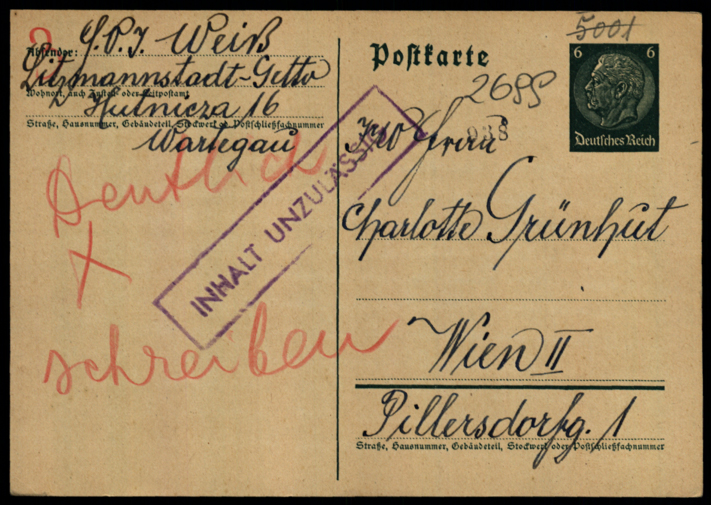 S.P.J. Weiß
Absender:
Litzmannstadt-Getto
Wohnort, auch Zustell- oder Leitpostamt
Hutnicza 16
Straße, Hausnummer, Gebäudeteil, Stockwerk od. Postschließfachnummer
Wartegau
Deutlich
+
schreiben
INHALT UNZULÄSSIG
Postkarte
5001
6 6
Deutsches Reich
2699
938
Frau
Charlotte Grünhut
Wien II
Pillersdorfg. 1
Straße, Hausnummer, Gebäudeteil, Stockwerk oder Postschließfachnummer